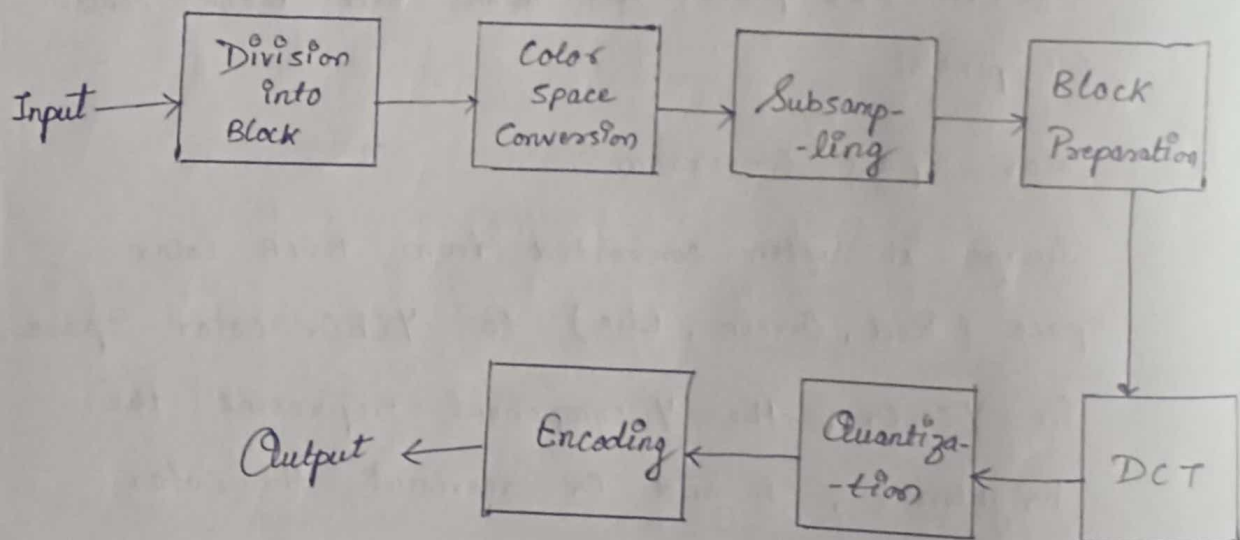 Input
Division
into
Block
Color
Space
Conversion
Subsamp-
-ling
Block
Preparation
DCT
Quantiza-
-tion
Encoding
Output